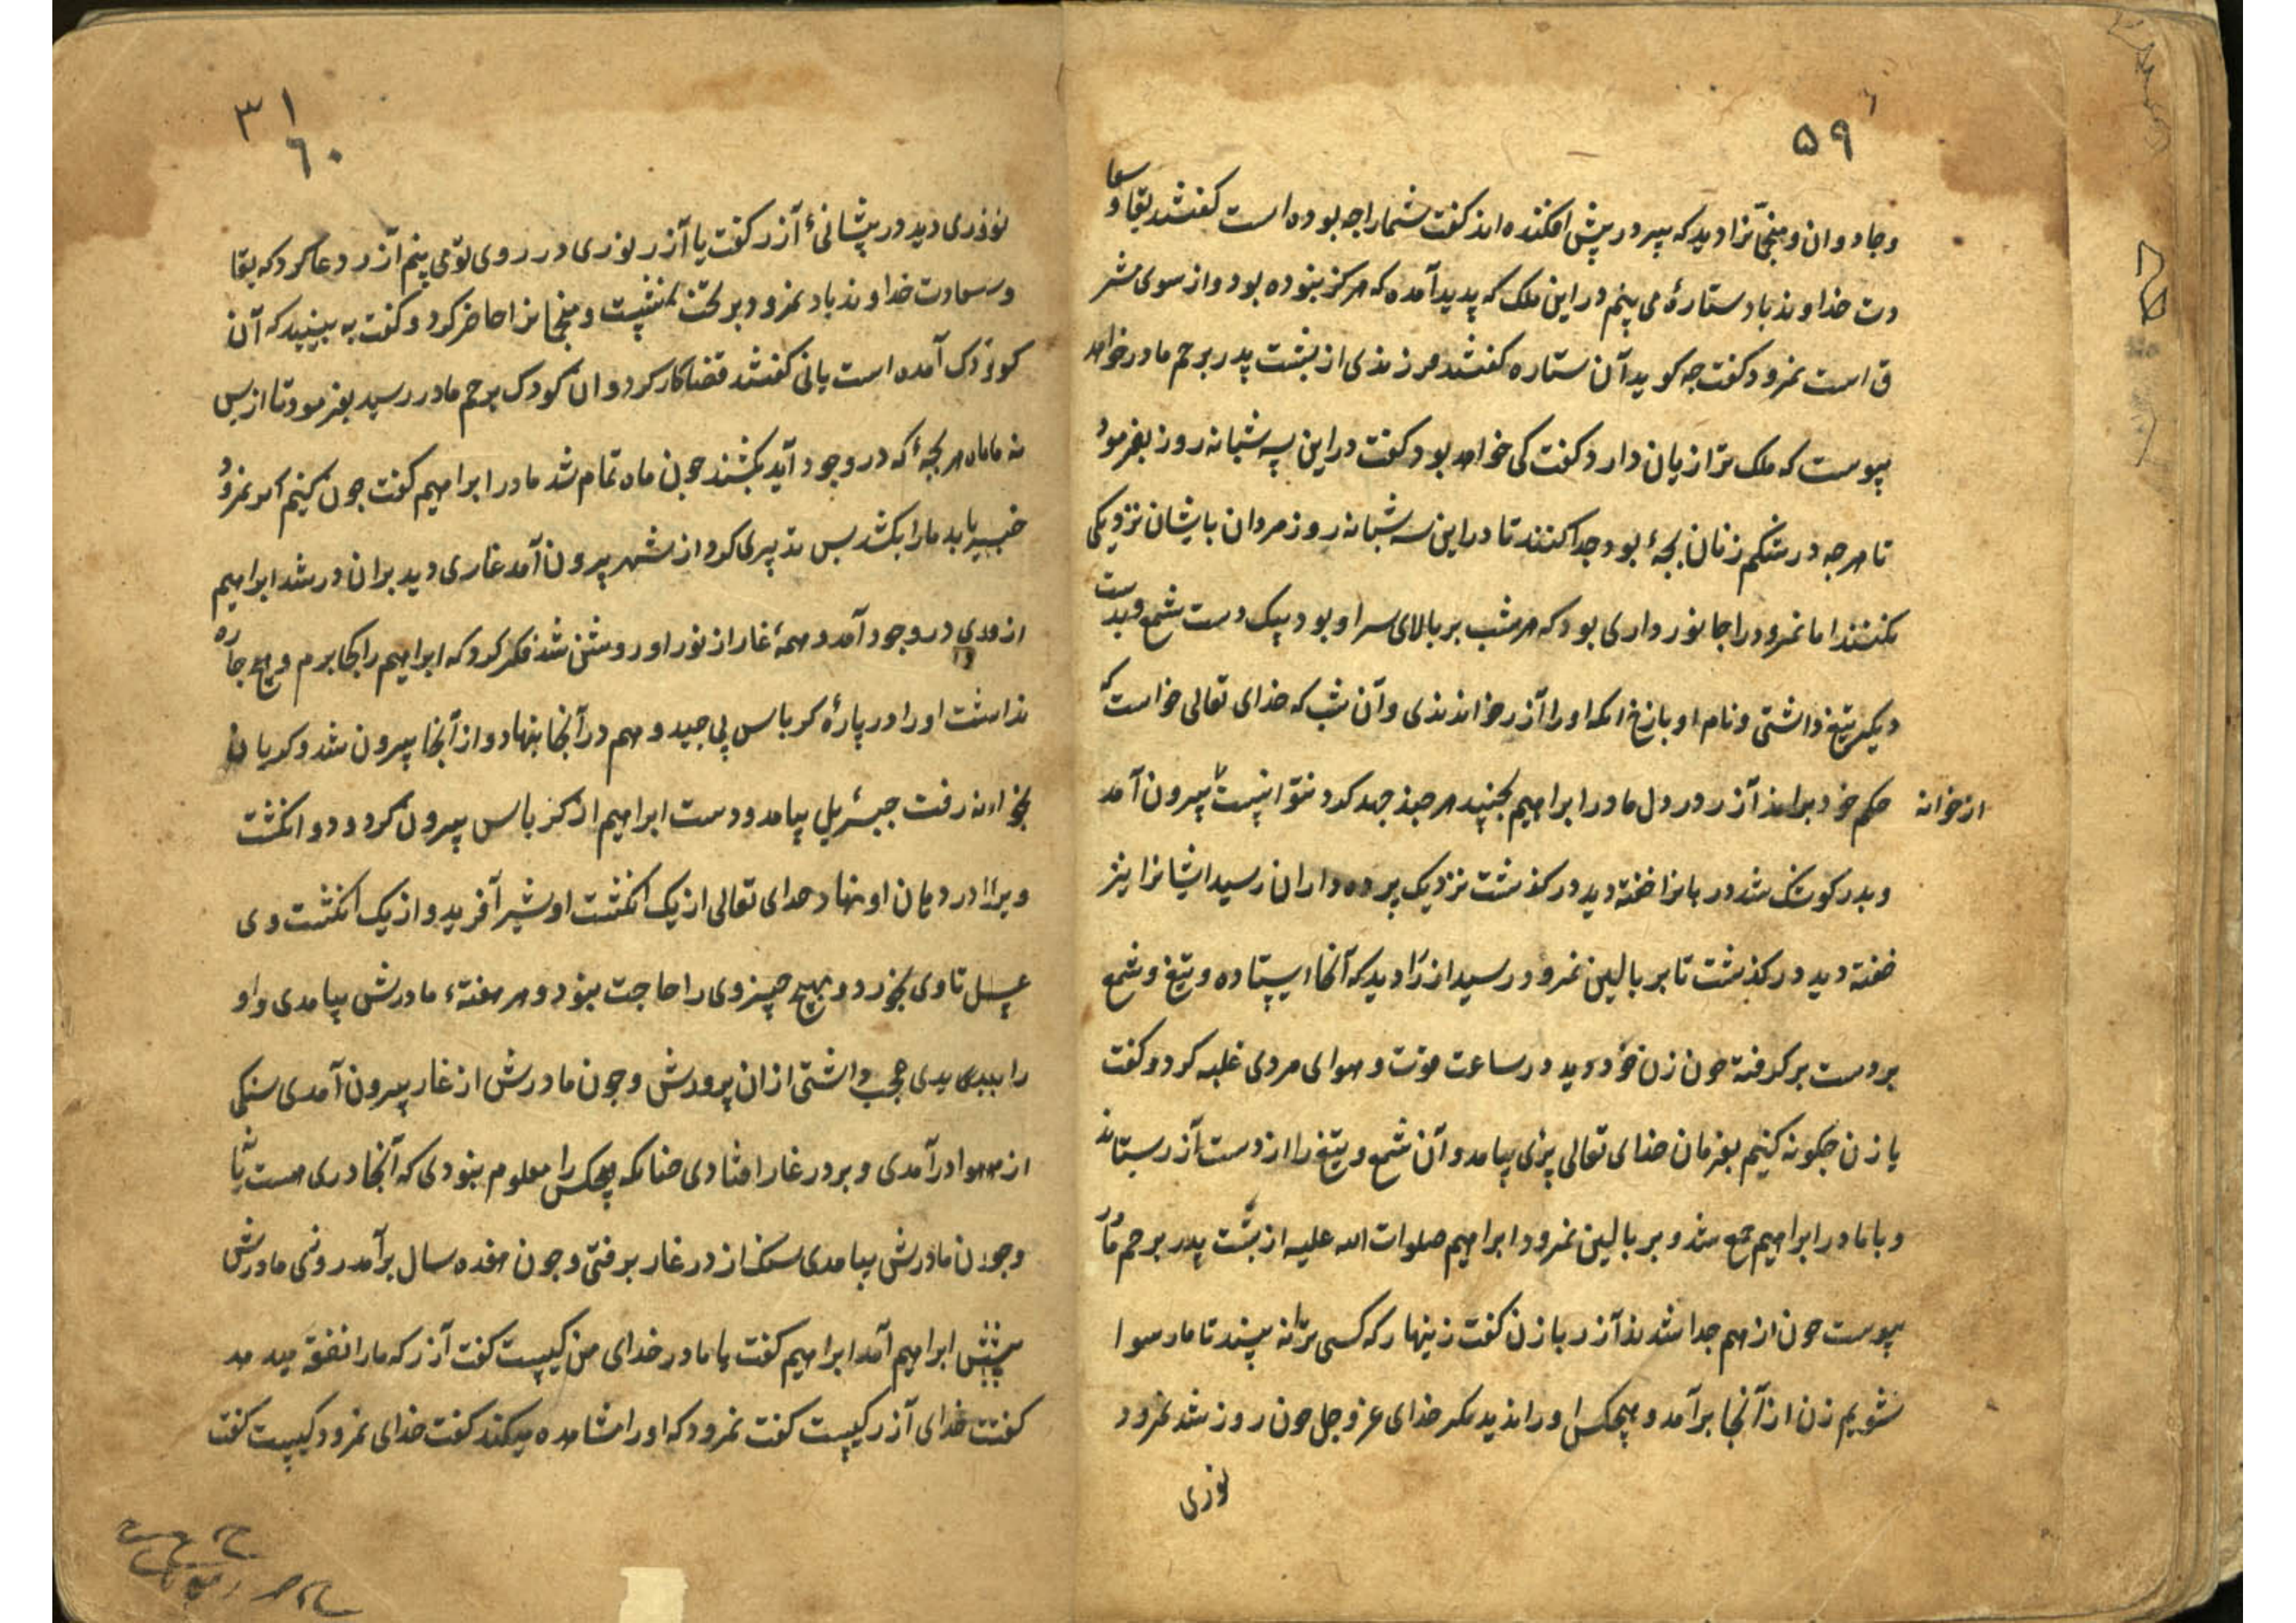 ۵۹
وجادوان ومنجّانرا دید که سر در پیش افکنده اند کفت شمارا جه بوده است کفتند بقا وسعا
دت خداوند باد ستارهٔ می بینم در این ملک که پدید آمده که هرکز نبوده بود واز سوی مشر
ق است نمرود کفت جه کوید آن ستاره کفتند فرزندی از پشت پدر برحم مادر خواهد
پیوست که ملک ترا زیان دارد کفت کی خواهد بود کفت در این سه شبانه روز بفرمود
تا هرجه در شکم زنان بجهٔ بود جدا کنند تا در این سه شبانه روز مردان بایشان نزدیکی
نکنند اما نمرود را جانورداری بود که هر شب بر بالای سر او بود بیک دست شمع وبدست
دیکر تیغ داشتی ونام او بازغ اما او را آزر خواندندی وآن شب که خدای تعالی خواست که
حکم خود براند آزر در دل مادر ابراهیم بجنبید هرچند جهد کرد نتوانست بیرون آمد
از خوانه
وبدر کوشک شد دربانرا خفته دید در کذشت نزدیک پرده داران رسید ایشانرا نیز
خفته دید در کذشت تا بر بالین نمرود رسید آزر را دید که آنجا ایستاده وتیغ وشمع
بر دست بر کرفته جون زن خود دید در ساعت موت وهوای مردی غلبه کرد وکفت
یا زن جکونه کنیم بفرمان خدای تعالی پری بیامد وآن شمع وتیغ را از دست آزر بستاند
وبا مادر ابراهیم جمع شد وبر بالین نمرود ابراهیم صلوات الله علیه از پشت پدر برحم مادر
پیوست جون از هم جدا شدند آزر با زن کفت زینهار که کسی ترا نه بیند تا ما رسوا
نشویم زن از آنجا برآمد وهیچکس او را ندید مکر خدای عز وجل جون روز شد نمرود
نوری
۳۱
۶۰
نوری دید در پیشانیٔ آزر کفت یا آزر نوری در روی تو می بینم آزر دعا کرد که بقا
وسعادت خداوند باد نمرود بر تخت بنشست ومنجانرا حاضر کرد وکفت به ببینید که آن
کودک آمده است یا نی کفتند قضا کار کرد وان کودک برحم مادر رسید بفرمود تا از پس
نه ماماه هر بجهٔ که در وجود آید بکشند جون ماه تمام شد مادر ابراهیم کفت جون کنیم اکر نمرود
خبر یابد ما را بکشد پس تدبیری کرد از شهر بیرون آمد غاری دید بران در شد ابراهیم
از وی در وجود آمد وهمهٔ غار از نور او روشن شد فکر کرد که ابراهیم را کجا برم وهیچ جاره
نداشت او را در پارهٔ کرباس پی جید وهم در آنجا بنهاد واز آنجا بیرون شد وکریان
بخوانه رفت جبرئیل بیامد ودست ابراهیم از کرباس بیرون کرد ودو انکشت
ویرا در دهان او نهاد خدای تعالی از یک انکشت او شیر آفرید واز یک انکشت وی
عسل تا وی بخورد وبهیچ چیز وی را حاجت نبود وهر هفتهء مادرش بیامدی واو
را بدیدی عجب داشتی از ان پرورش وجون مادرش از غار بیرون آمدی سنکی
از هوا درآمدی وبر در غار افتادی جنانکه هیچکس را معلوم نبودی که آنجا دری هست یا نی
وجون مادرش بیامدی سنک از در غار برفتی وجون هفده سال برآمد روزی مادرش
پیش ابراهیم آمد ابراهیم کفت یا مادر خدای من کیست کفت آزر که ما را نفقه میدهد
کفت خدای آزر کیست کفت نمرود که او را مشاهده میکند کفت خدای نمرود کیست کفت